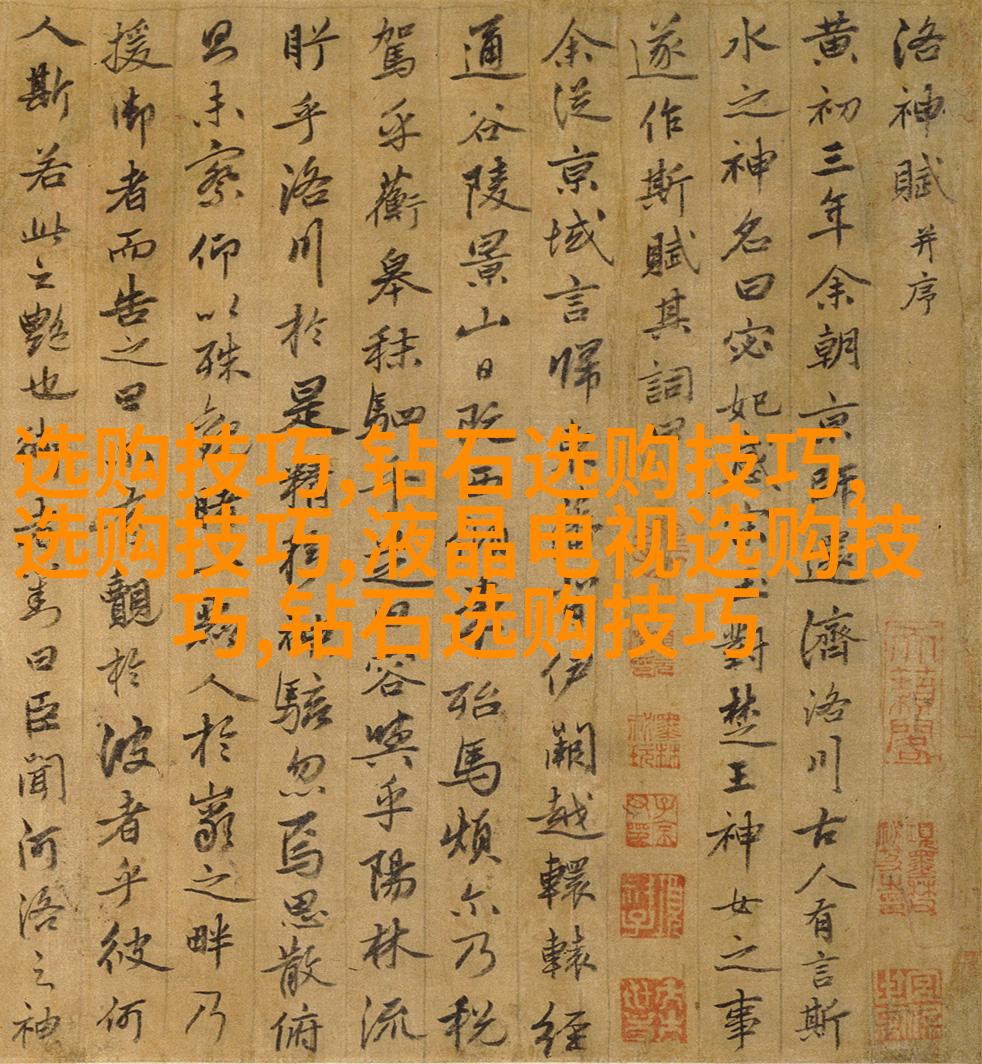 洛神賦并序
黄初三年余朝京師還濟洛川古人有言斯
水之神名曰宓妃感宋玉對楚王神女之事
遂作斯賦其詞曰
余從京域言歸東藩背伊闕越轘轅經
通谷陵景山日既西傾車殆馬煩尔乃税
駕乎蘅皋秣駟乎芝田容與乎陽林流
眄乎洛川於是精移神駭忽焉思散俯
則未察仰以殊觀睹一麗人於巖之畔乃
援御者而告之曰尔有覿於彼者乎彼何
人斯若此之艷也御者對曰臣聞河洛之神
选购技巧,钻石选购技巧,
选购技巧,液晶电视选购技
巧,钻石选购技巧